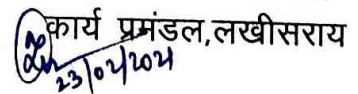 कार्य प्रमंडल,लखीसराय
23/02/2021